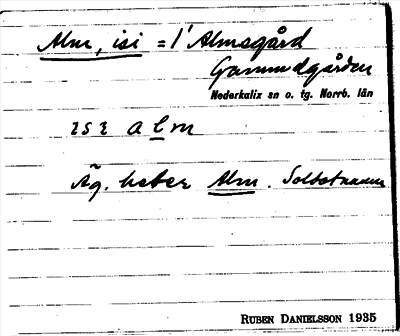 Alm, isi = i Almsgård
Gammelgården
Nederkalix sn o. tg. Norrb. län
ɩsɩ alm
Äg. heter Alm. Soldatnamn
RUBEN DANIELSSON 1935